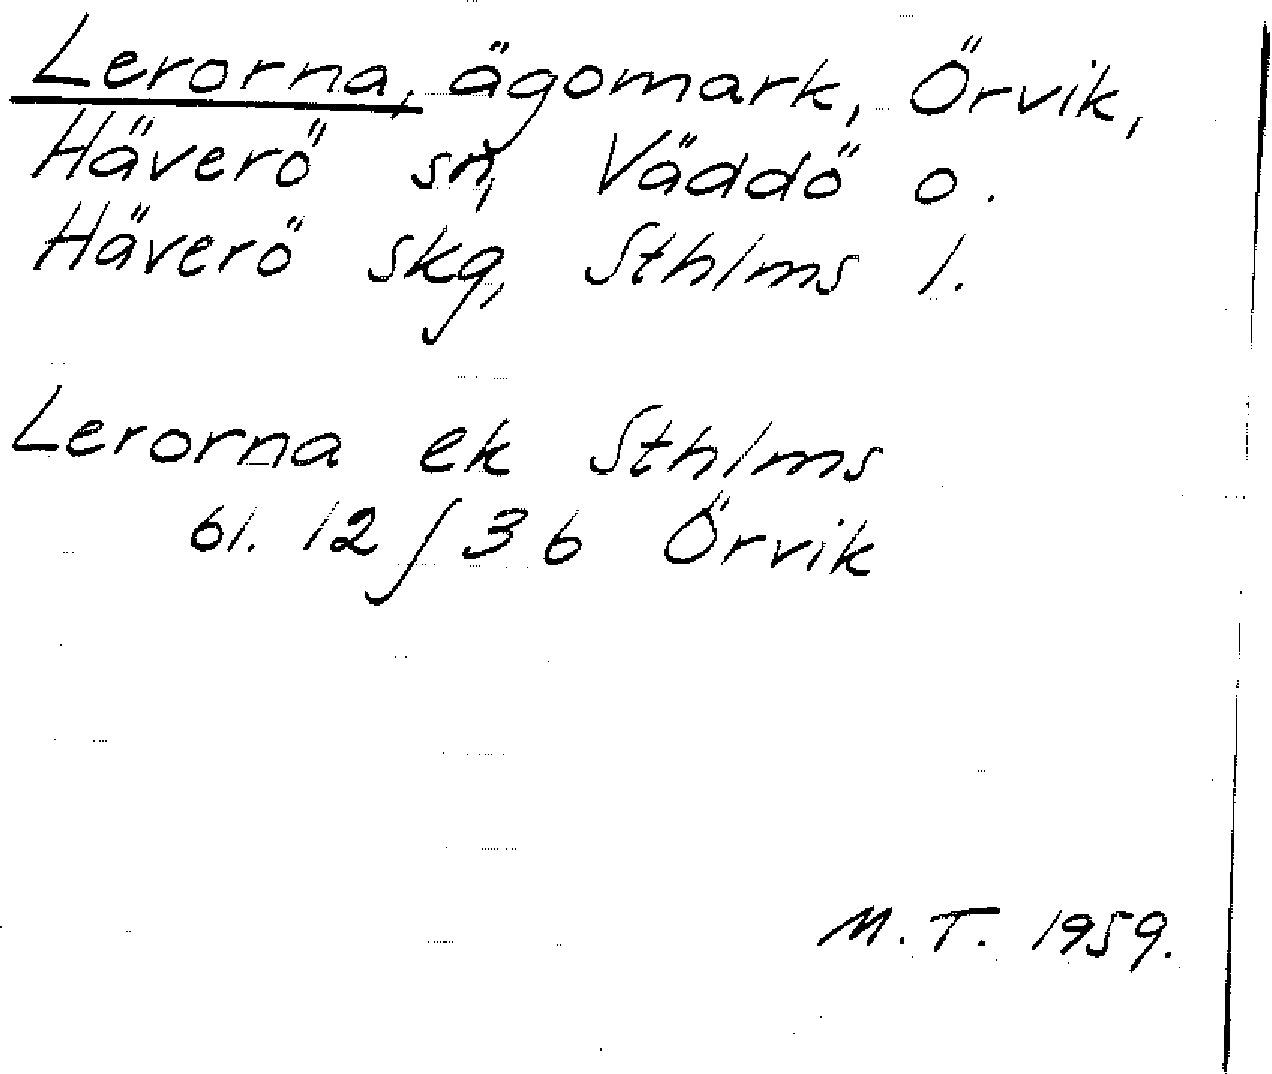 Lerorna, ägomark, Örvik,
Häverö sn, Väddö o.
Häverö skg, Sthlms l.
Lerorna ek Sthlms
bl. 12 / 36 Örvik
M.T. 1959.